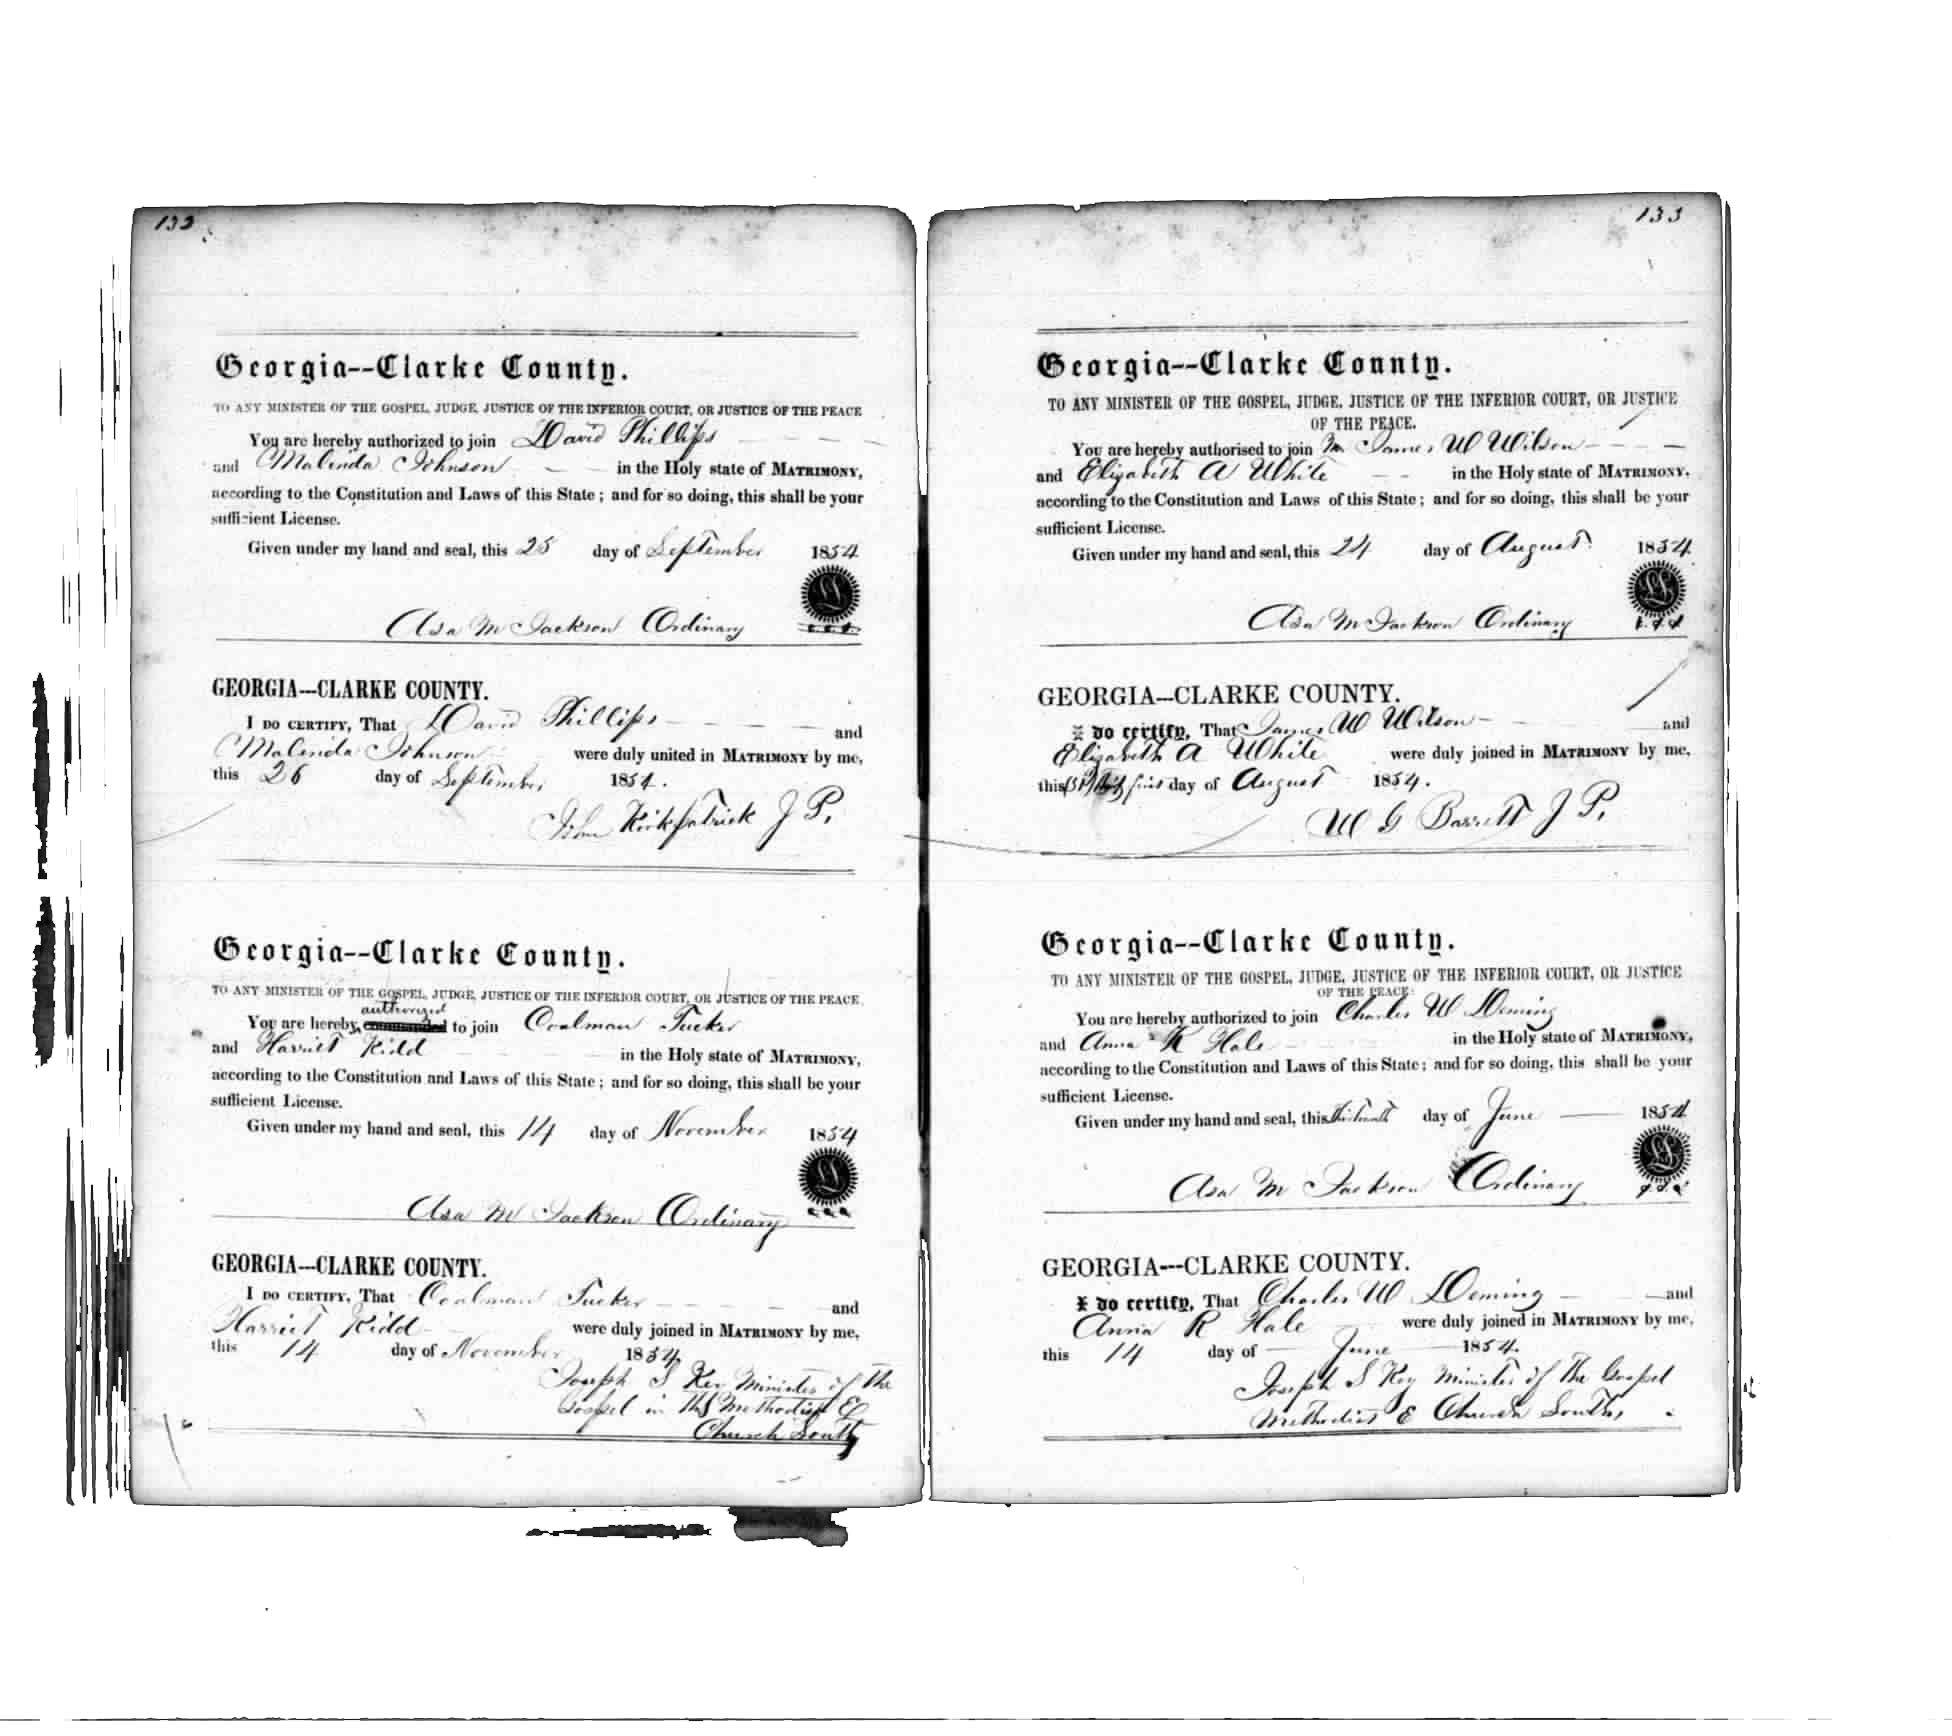 132
Georgia--Clarke County.
TO ANY MINISTER OF THE GOSPEL, JUDGE, JUSTICE OF THE INFERIOR COURT, OR JUSTICE OF THE PEACE
You are hereby authorized to join David Phillips
and Malinda Johnson in the Holy state of MATRIMONY,
according to the Constitution and Laws of this State; and for so doing, this shall be your
sufficient License.
Given under my hand and seal, this 25 day of September 1854
Asa M Jackson Ordinary
GEORGIA--CLARKE COUNTY.
I DO CERTIFY, That David Phillips and
Malinda Johnson were duly united in MATRIMONY by me,
this 26 day of September 1854.
John Kirkpatrick J P,
Georgia--Clarke County.
TO ANY MINISTER OF THE GOSPEL, JUDGE, JUSTICE OF THE INFERIOR COURT, OR JUSTICE OF THE PEACE
authorized
You are hereby commanded to join Coalman Tucker
and Harriet Kidd in the Holy state of MATRIMONY,
according to the Constitution and Laws of this State; and for so doing, this shall be your
sufficient License.
Given under my hand and seal, this 14 day of November 1854
Asa M Jackson Ordinary
GEORGIA--CLARKE COUNTY.
I DO CERTIFY, That Coalman Tucker and
Harriet Kidd were duly joined in MATRIMONY by me,
this 14 day of November 1854
Joseph S Key Minister of the
Gospel in the Methodist Ep
Church South
133
Georgia--Clarke County.
TO ANY MINISTER OF THE GOSPEL, JUDGE, JUSTICE OF THE INFERIOR COURT, OR JUSTICE
OF THE PEACE.
You are hereby authorised to join Mr James W Wilson
and Elizabeth A White in the Holy state of MATRIMONY,
according to the Constitution and Laws of this State; and for so doing, this shall be your
sufficient License.
Given under my hand and seal, this 24 day of August 1854
Asa M Jackson Ordinary
GEORGIA--CLARKE COUNTY.
I do certify, That James W Wilson and
Elizabeth A White were duly joined in MATRIMONY by me,
this first day of August 1854.
W G Barrett J P,
Georgia--Clarke County.
TO ANY MINISTER OF THE GOSPEL, JUDGE, JUSTICE OF THE INFERIOR COURT, OR JUSTICE
OF THE PEACE.
You are hereby authorized to join Charles W Deming
and Anna R Hale in the Holy state of MATRIMONY,
according to the Constitution and Laws of this State; and for so doing, this shall be your
sufficient License.
Given under my hand and seal, this thirteenth day of June 1854
Asa M Jackson Ordinary
GEORGIA---CLARKE COUNTY.
I do certify, That Charles W Deming and
Anna R Hale were duly joined in MATRIMONY by me,
this 14 day of June 1854.
Joseph S Key Minister of the Gospel
Methodist E Church South,